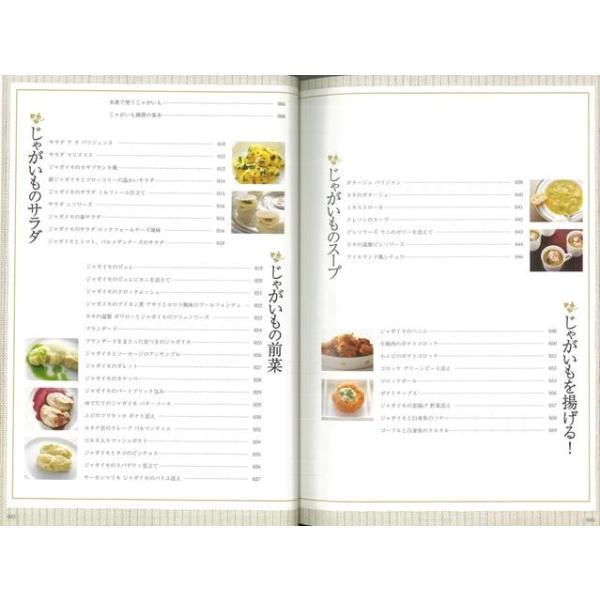 本書で使うじゃがいも 006
じゃがいも調理の基本 008
じゃがいものサラダ
サラダ ア ラ パリジェンヌ 010
サラダ マリスコス 012
ジャガイモのカサブランカ風 013
新ジャガイモとブロッコリーの温かいサラダ 013
ジャガイモのサラダ ミルフィーユ仕立て 014
サラダ ニソワーズ 016
ジャガイモの春サラダ
ジャガイモのサラダ ロックフォールチーズ風味
ジャガイモとトマト、パルメザンチーズのサラダ 018
じゃがいもの前菜
ジャガイモのピュレ 019
ジャガイモのピュレにウニを添えて 020
ジャガイモのクロックムッシュ 021
ジャガイモのブイヨン煮 アサリとセロリ風味のブールフォンデュ
ブランダード
ブランダードをまとった皮つきのジャガイモ
ジャガイモとソーセージのアンサンブル
ジャガイモのガレット
ジャガイモのカナッペ
ジャガイモのパートブリック包み
ゆでたてのジャガイモ バターソース
エビのフリカッセ ポテト添え 030
ホタテ貝のクレープ パルマンティエ
コルネ入りマッシュポテト 034
ジャガイモとタコのピンチョス
ジャガイモのスパゲティ仕立て 036
サーモンマリネ ジャガイモのパイユ添え 037
じゃがいものスープ
ポタージュ パリジャン
カキのポタージュ
ミネストローネ 041
クレソンのスープ 042
アイルランド風シチュウ 046
じゃがいもを揚げる!
ジャガイモのベニエ 048
牛挽肉のポテトコロッケ
コロッケ グリーンピース添え
コロッケボール
ポテトチップス
ジャガイモの素揚げ 野菜添え 057
ジャガイモと白身魚のソテー 058
ゴーフルと白身魚のタルタル 059